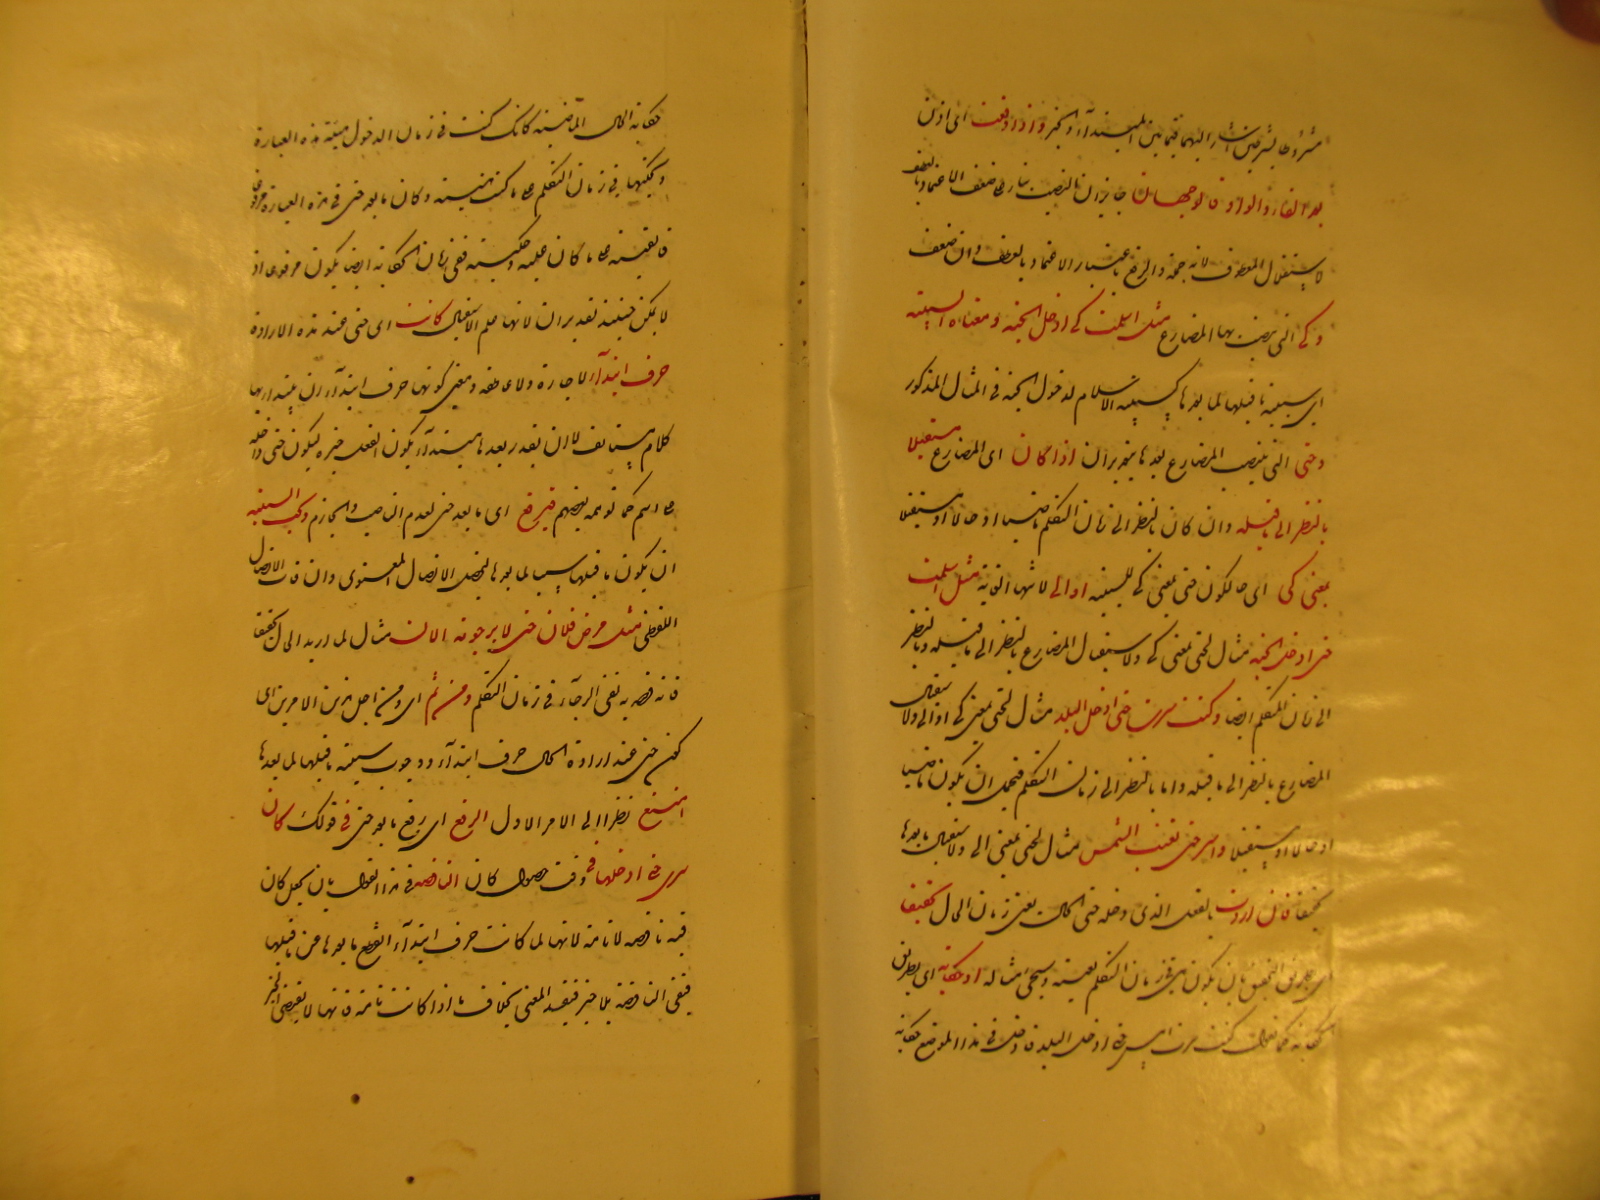 مشروطا بشرطين اشار اليهما فيما بين المبتدأ والخبر واذا وقعت اى اذن
بعد الفاء والواو فالوجهان جايزان النصب بناء على ضعف الاعتماد بالعطف
لاستقلال المعطوف لانه جملة والرفع باعتبار الاعتماد بالعطف وان ضعف
وكى التى ينتصب بها المضارع مثل اسلمت كى ادخل الجنة ومعناه السببية
اى سببية ما قبلها لما بعدها كسببية الاسلام لدخول الجنة فى المثال المذكور
وحتى التى ينتصب المضارع بعدها بتقدير ان اذا كان اى المضارع مستقبلا
بالنظر الى ما قبله وان كان بالنظر الى زمان التكلم ماضيا او حالا او مستقبلا
بمعنى كى اى حال كون حتى بمعنى كى للسببية او الى لانتهاء الغاية مثل اسلمت
حتى ادخل الجنة مثال لحتى بمعنى كى ولاستقبال المضارع بالنظر الى ما قبله وبالنظر
الى زمان التكلم ايضا وكنت سرت حتى ادخل البلد مثال لحتى بمعنى كى او الى ولاستقبال
المضارع بالنظر الى ما قبله واما بالنظر الى زمان التكلم فيحتمل ان يكون ماضيا
او حالا او مستقبلا واسير حتى تغيب الشمس مثال لحتى بمعنى الى ولاستقبال ما بعدها
تحقيقا فان اردت بالفعل الذى دخله حتى الحال يعنى زمان الحال تحقيقا
اى بطريق التحقيق بان يكون هى زمان التكلم بعينه وسيجئ مثاله او حكاية اى بطريق
الحكاية كما تقول كنت سرت امس حتى ادخل البلد فادخل فى هذا الموضع حكاية
حكاية الحال الماضية كانك كنت فى زمان الدخول هيئة هذه العبارة
وتحكيها فى زمان التكلم على ما كنت هيئته وكان ما بعد حتى فى هذه العبارة مرفوعا
فابقيته على ما كان عليه وحكيته ففى زمان الحكاية ايضا يكون مرفوعا اذ
لا يمكن حينئذ تقدير ان لانها علم الاستقبال كانت اى حتى عند هذه الارادة
حرف ابتداء لا جارة ولا عاطفة ومعنى كونها حرف ابتداء ان يبتدأ بها
كلام مستانف لا ان يقدر بعدها مبتدأ يكون الفعل خبره ليكون حتى داخلة
على اسم كما توهمه بعضهم فيرفع اى ما بعد حتى لعدم الناصب والجازم وتجب السببية
ان يكون ما قبلها سببا لما بعدها ليحصل الاتصال المعنوى وان فات الاتصال
اللفظى مثل مرض فلان حتى لا يرجونه الان مثال لما اريد الحال تحقيقا
فانه قصد به نفى الرجاء فى زمان التكلم ومن ثم اى ومن اجل هذين الامرين اى
كون حتى عند ارادة الحال حرف ابتداء ووجوب سببية ما قبلها لما بعدها
امتنع نظرا الى الامر الاول الرفع اى رفع ما بعد حتى فى قولك كان
سيرى حتى ادخلها فى وقت حصول كان الناقصة فى هذا القول بان يجعل كان
فيه ناقصة لا تامة لانها لما كانت حرف ابتداء انقطع ما بعدها عن ما قبلها
فبقى الناقصة بلا خبر فيفسد المعنى بخلاف ما اذا كانت تامة فانها لا يقتضى الخبر